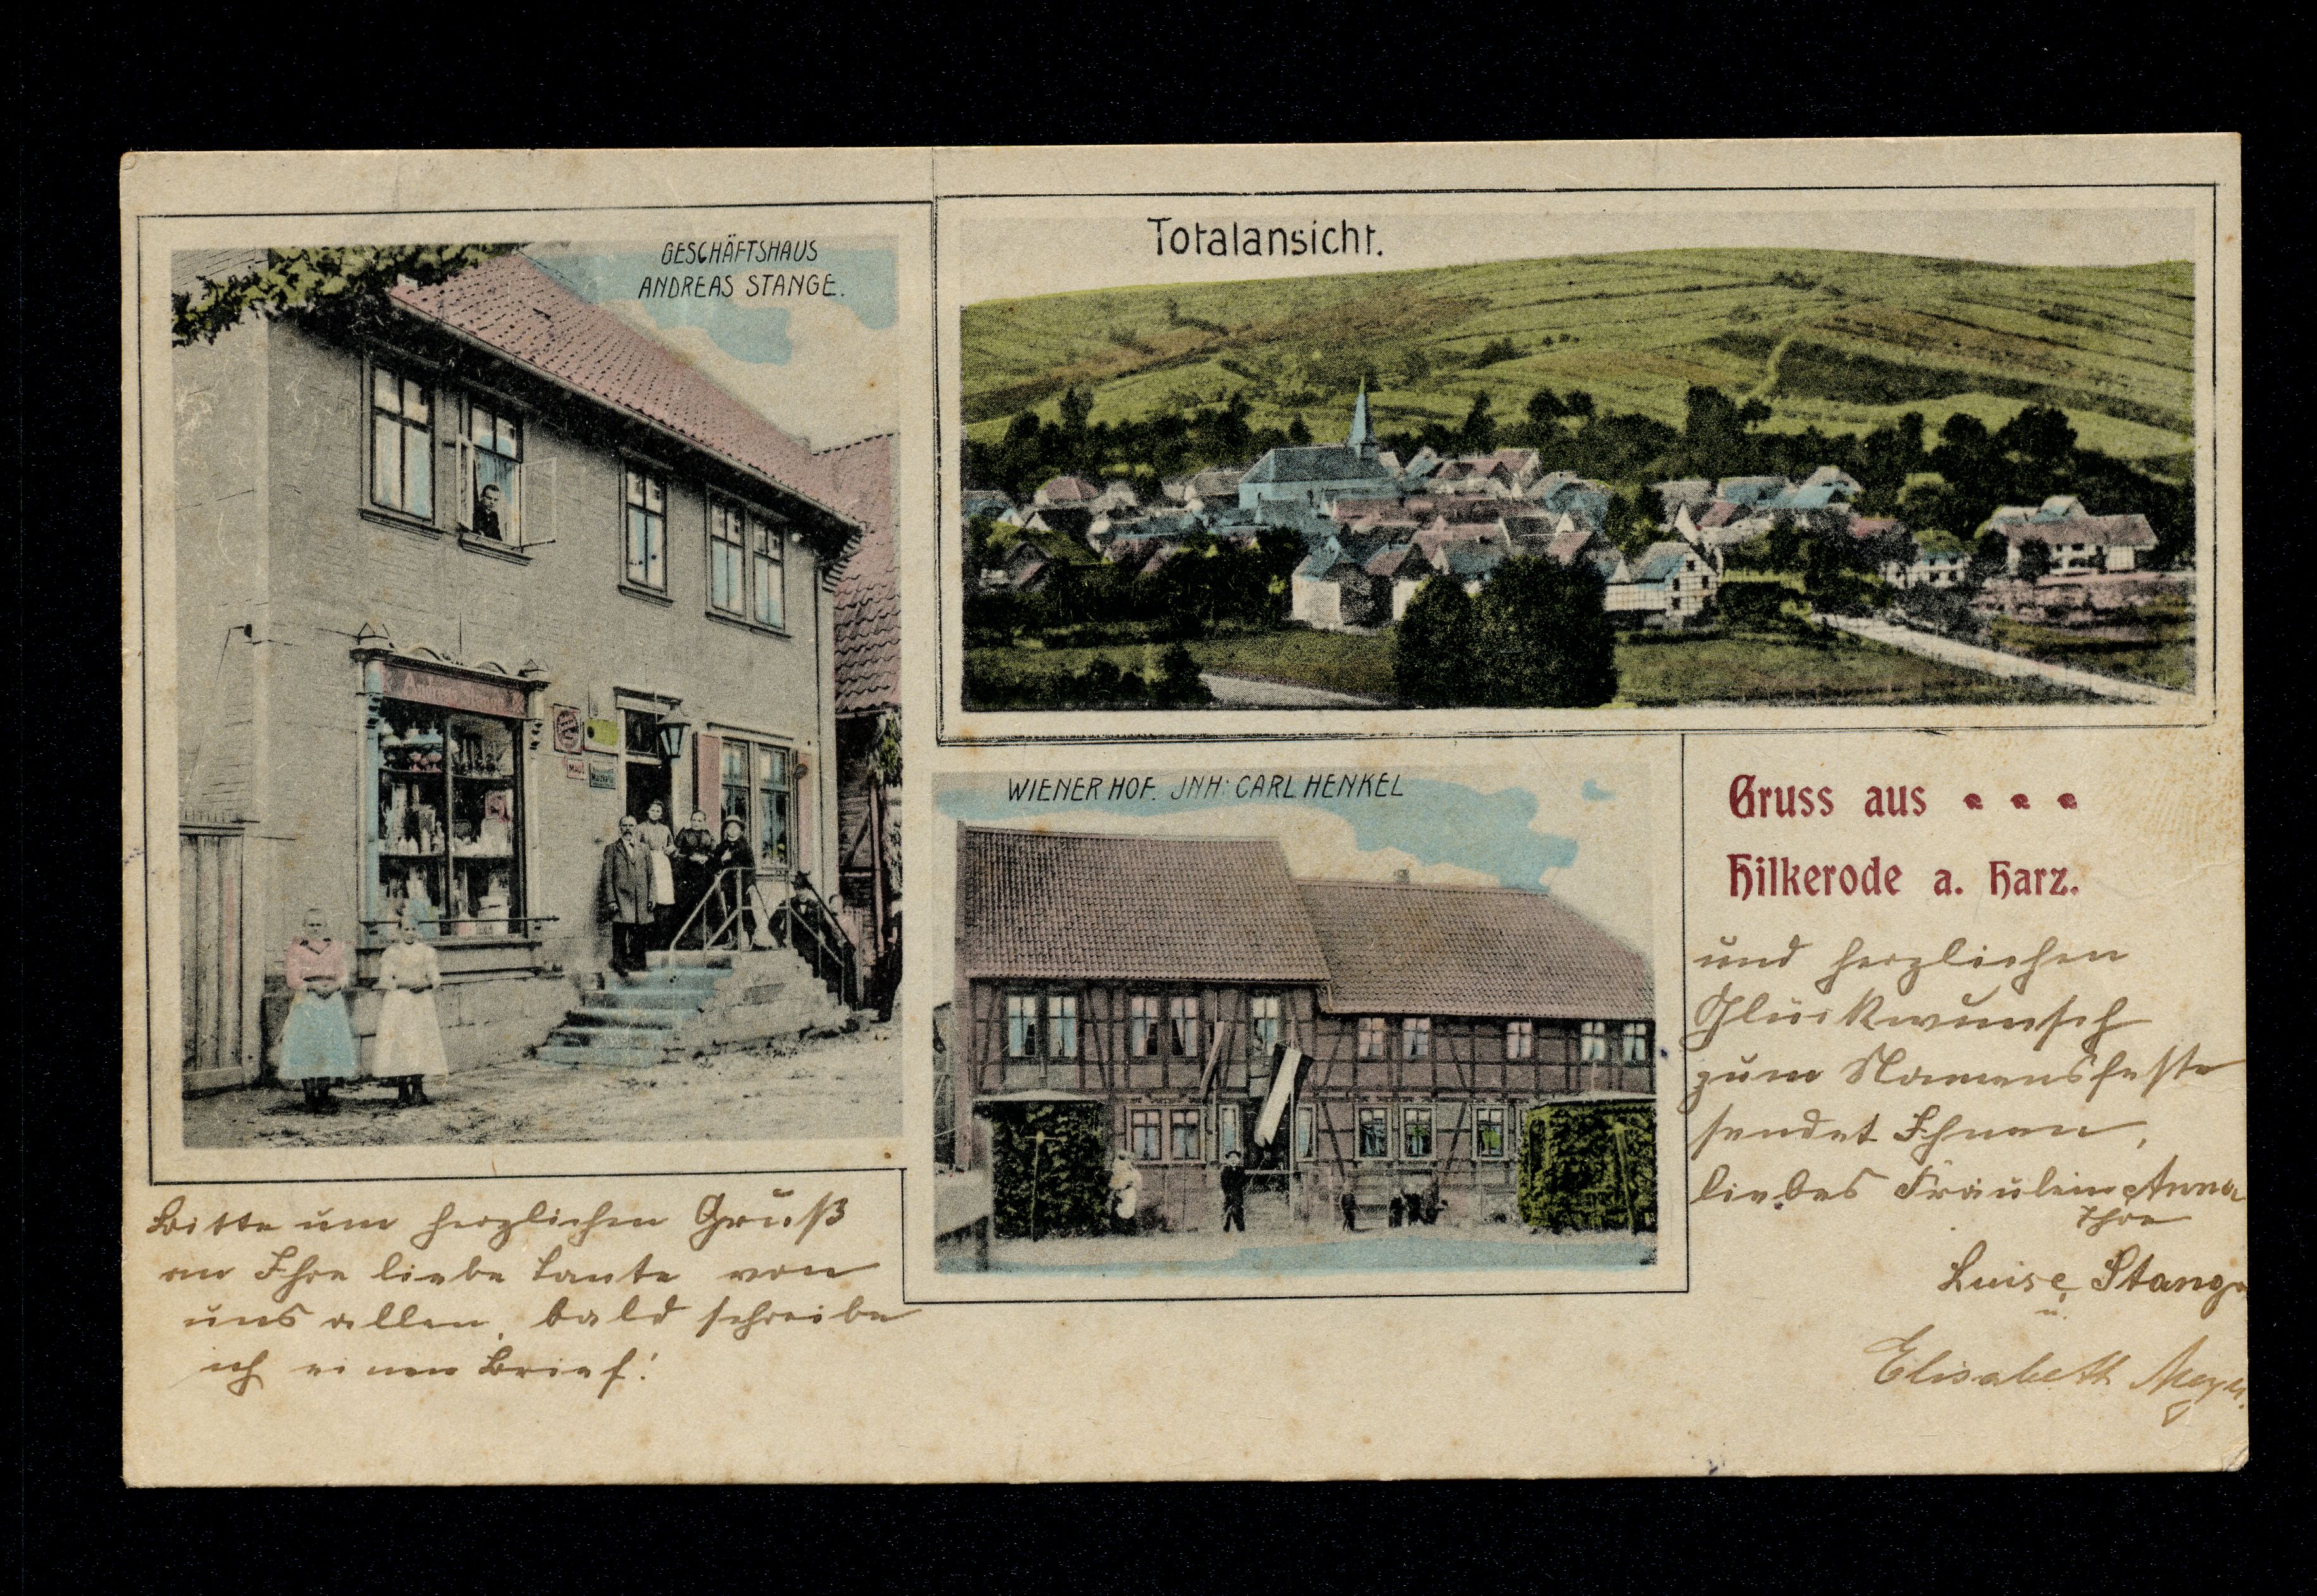 GESCHÄFTSHAUS
ANDREAS STANGE.
Totalansicht.
WIENER HOF. JNH: CARL HENKEL
Gruss aus
Hilkerode a. Harz.
und herzlichen
Glückwunsch
zum Namensfeste
sendet Ihnen,
liebes Fräulein Anna
Ihre
Luise Stange
u.
Elisabeth Meyer.
Bitte um herzlichen Gruß
an Ihre liebe Tante von
uns allen, bald schreibe
ich einen Brief!